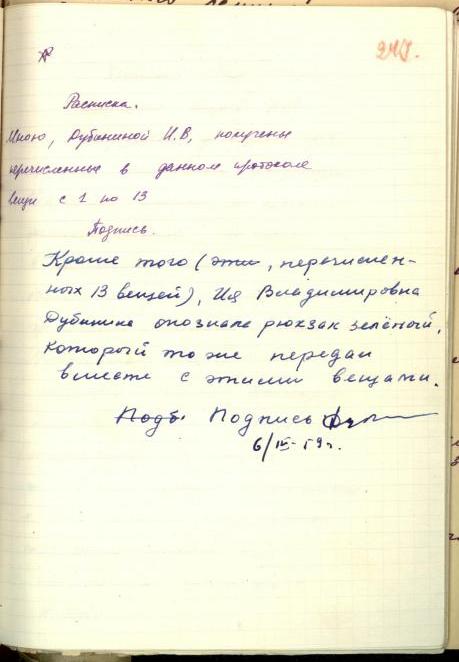 Расписка.
Мною, Дубининой И.В, получены
перечисленные в данном протоколе
вещи с 1 по 13
Подпись.
Кроме того (эти, перечислен-
ных 13 вещей), Ия Владимировна
Дубинина опознала рюкзак зелёный,
который тоже передан
вместе с этими вещами.
Подб. Подпись
6/IV-59г.